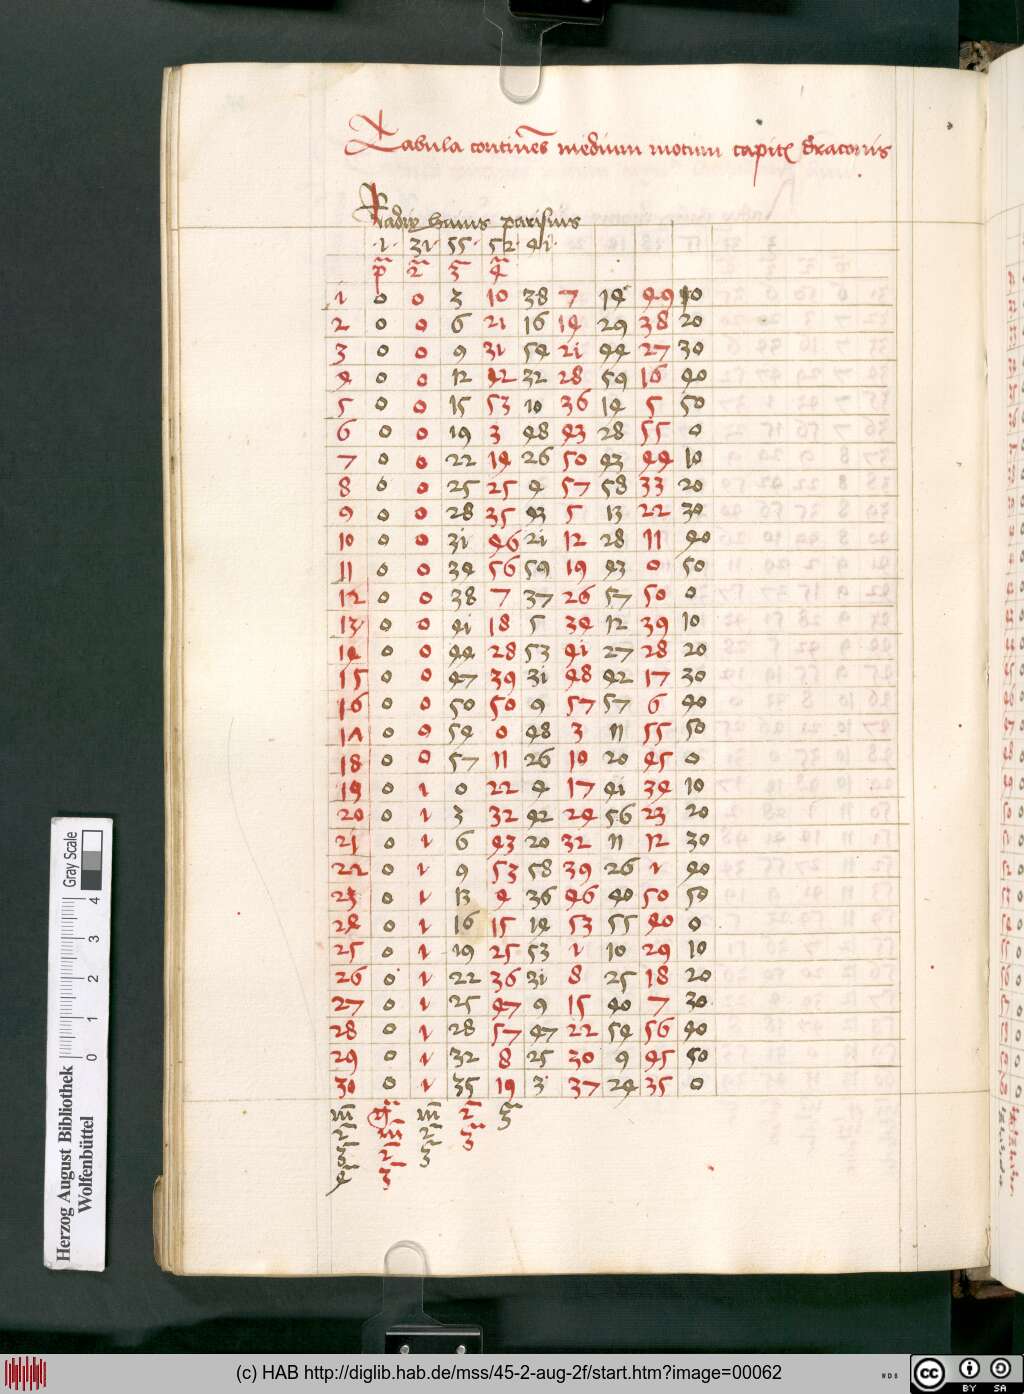 Tabula continens medium motum capitis draconis
Radix huius parisius
·1· 31· 55· 52· 41·
p̄ 2̄ 3̄ 4̄
1 0 0 3 10 38 7 14 49 10
2 0 0 6 21 16 14 29 38 20
3 0 0 9 31 54 21 44 27 30
4 0 0 12 42 32 28 59 16 40
5 0 0 15 53 10 36 14 5 50
6 0 0 19 3 48 43 28 55 0
7 0 0 22 14 26 50 43 44 10
8 0 0 25 25 4 57 58 33 20
9 0 0 28 35 43 5 13 22 30
10 0 0 31 46 21 12 28 11 40
11 0 0 34 56 59 19 43 0 50
12 0 0 38 7 37 26 57 50 0
13 0 0 41 18 5 34 12 39 10
14 0 0 44 28 53 41 27 28 20
15 0 0 47 39 31 48 42 17 30
16 0 0 50 50 9 57 57 6 40
17 0 0 54 0 48 3 11 55 50
18 0 0 57 11 26 10 20 45 0
19 0 1 0 22 4 17 41 34 10
20 0 1 3 32 42 24 56 23 20
21 0 1 6 43 20 32 11 12 30
22 0 1 9 53 58 39 26 1 40
23 0 1 13 4 36 46 40 50 50
24 0 1 16 15 14 53 55 40 0
25 0 1 19 25 53 1 10 29 10
26 0 1 22 36 31 8 25 18 20
27 0 1 25 47 9 15 40 7 30
28 0 1 28 57 47 22 54 56 40
29 0 1 32 8 25 30 9 45 50
30 0 1 35 19 3 37 24 35 0
m̄ m̄ 2̄ 3̄
2̄ m̄ 2̄ 3̄
3̄ 2̄ 3̄
4̄ 3̄
Gray Scale
0 1 2 3 4
Herzog August Bibliothek
Wolfenbüttel
(c) HAB http://diglib.hab.de/mss/45-2-aug-2f/start.htm?image=00062
cc BY SA